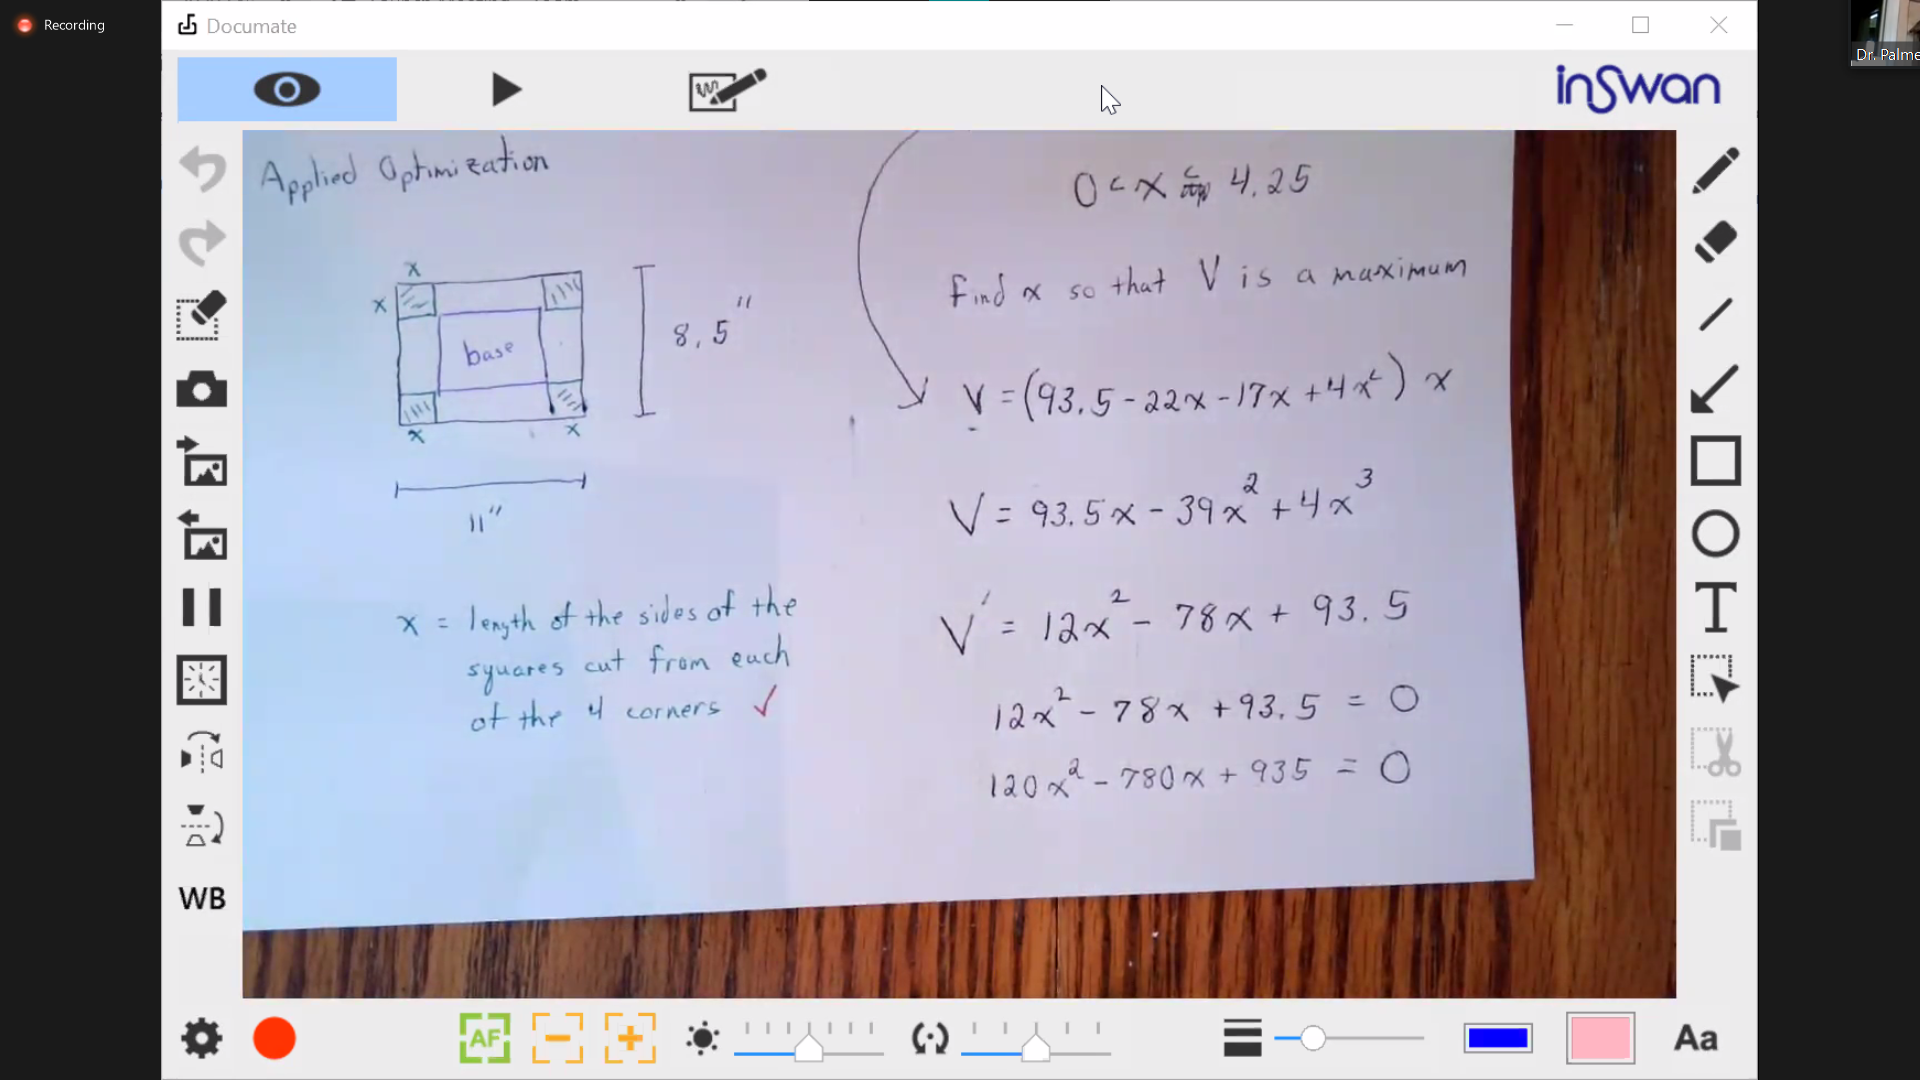 Recording
Documate
Dr. Palme
inSwan
Applied Optimization
x
x
base
8.5"
x
x
11"
x = length of the sides of the
squares cut from each
of the 4 corners ✓
0 < x < 4.25
find x so that V is a maximum
V = (93.5 - 22x - 17x + 4x²) x
V = 93.5x - 39x² + 4x³
V' = 12x² - 78x + 93.5
12x² - 78x + 93.5 = 0
120x² - 780x + 935 = 0
T
WB
AF
Aa